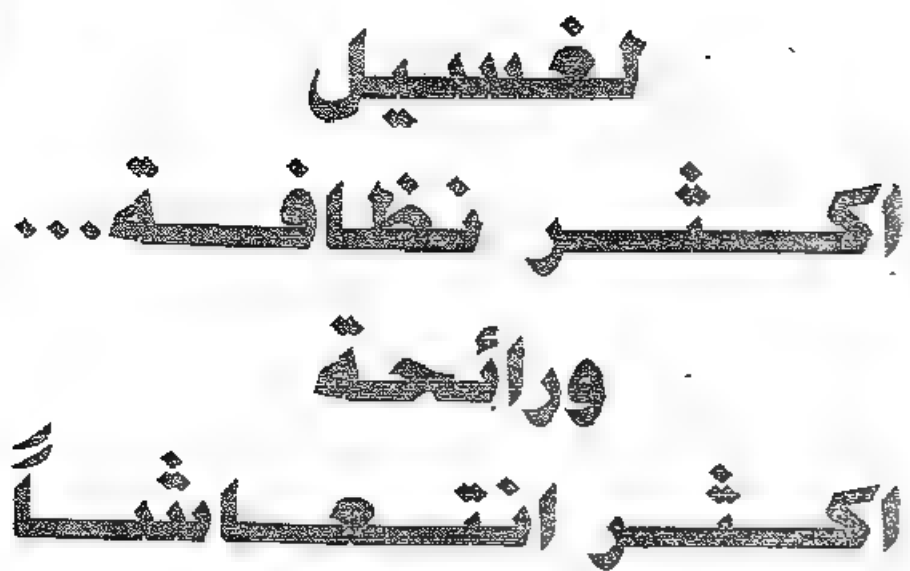 لغسيل
اكثر نظافة...
ورائحة
اكثر انتعاشاً